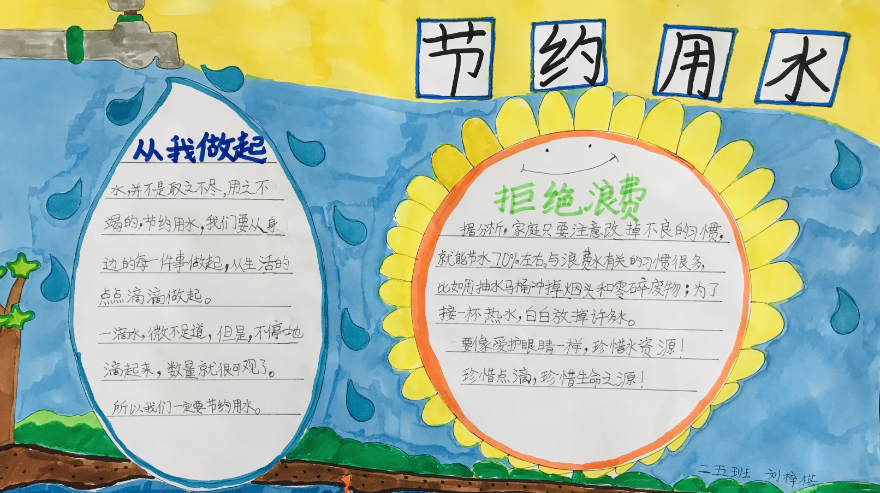 节约用水
从我做起
水,并不是取之不尽,用之不
竭的,节约用水,我们要从身
边的每一件事做起,从生活的
点点滴滴做起。
一滴水,微不足道,但是,不停地
滴起来,数量就很可观了。
所以我们一定要节约用水。
拒绝浪费
据分析,家庭只要注意改掉不良的习惯,
就能节水70%左右。与浪费水有关的习惯很多,
比如用抽水马桶冲掉烟头和零碎废物;为了
接一杯热水,白白放掉许多水。
要像爱护眼睛一样,珍惜水资源!
珍惜点滴,珍惜生命之源!
二五班 刘梓棋